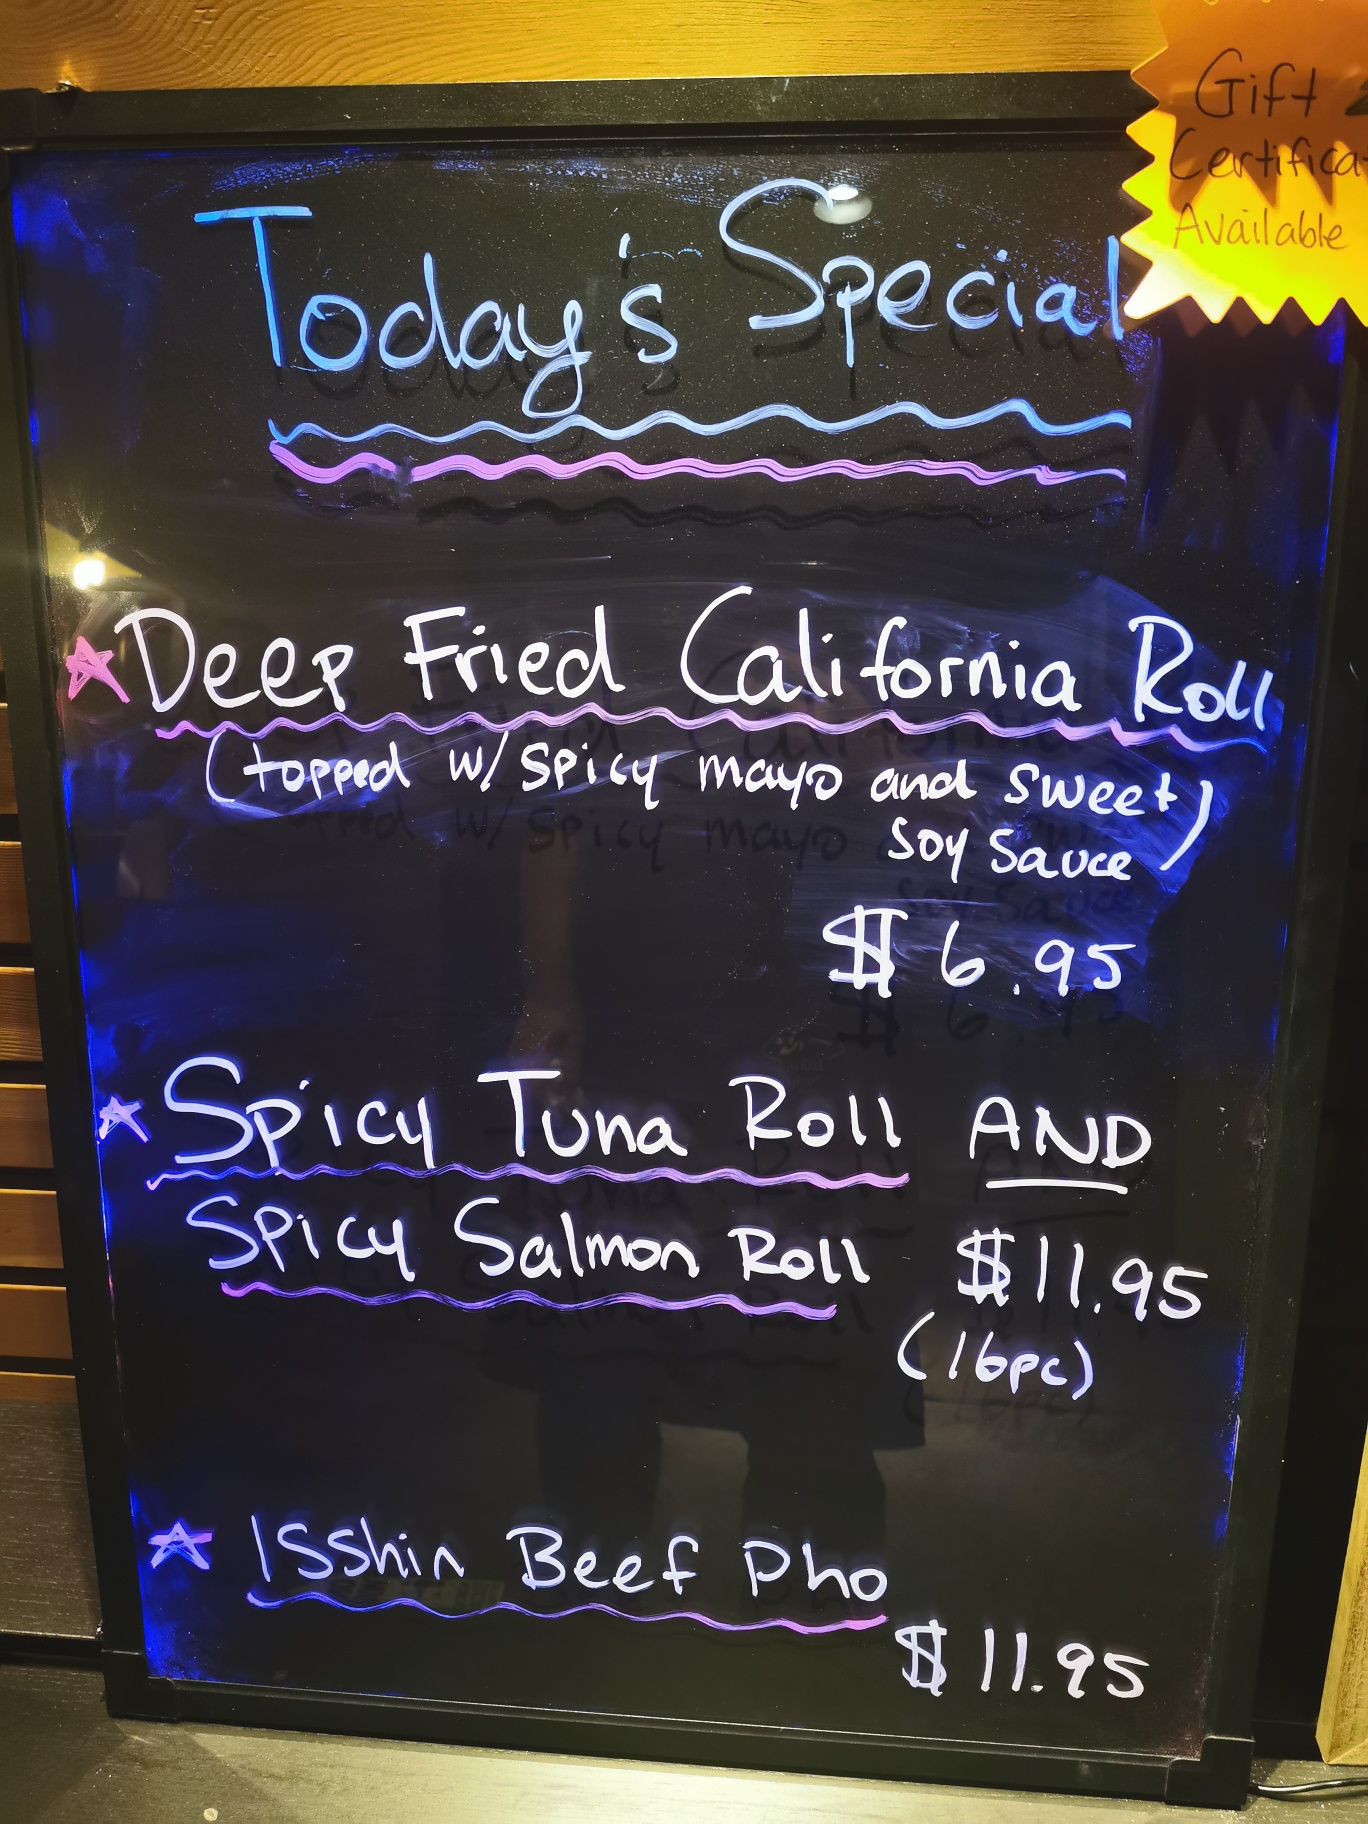 Gift
Certifica
Available
Today's Special
Deep Fried California Roll
(topped w/ spicy mayo and sweet
soy sauce)
$6.95
Spicy Tuna Roll AND
Spicy Salmon Roll $11.95
(16pc)
Isshin Beef Pho
$11.95